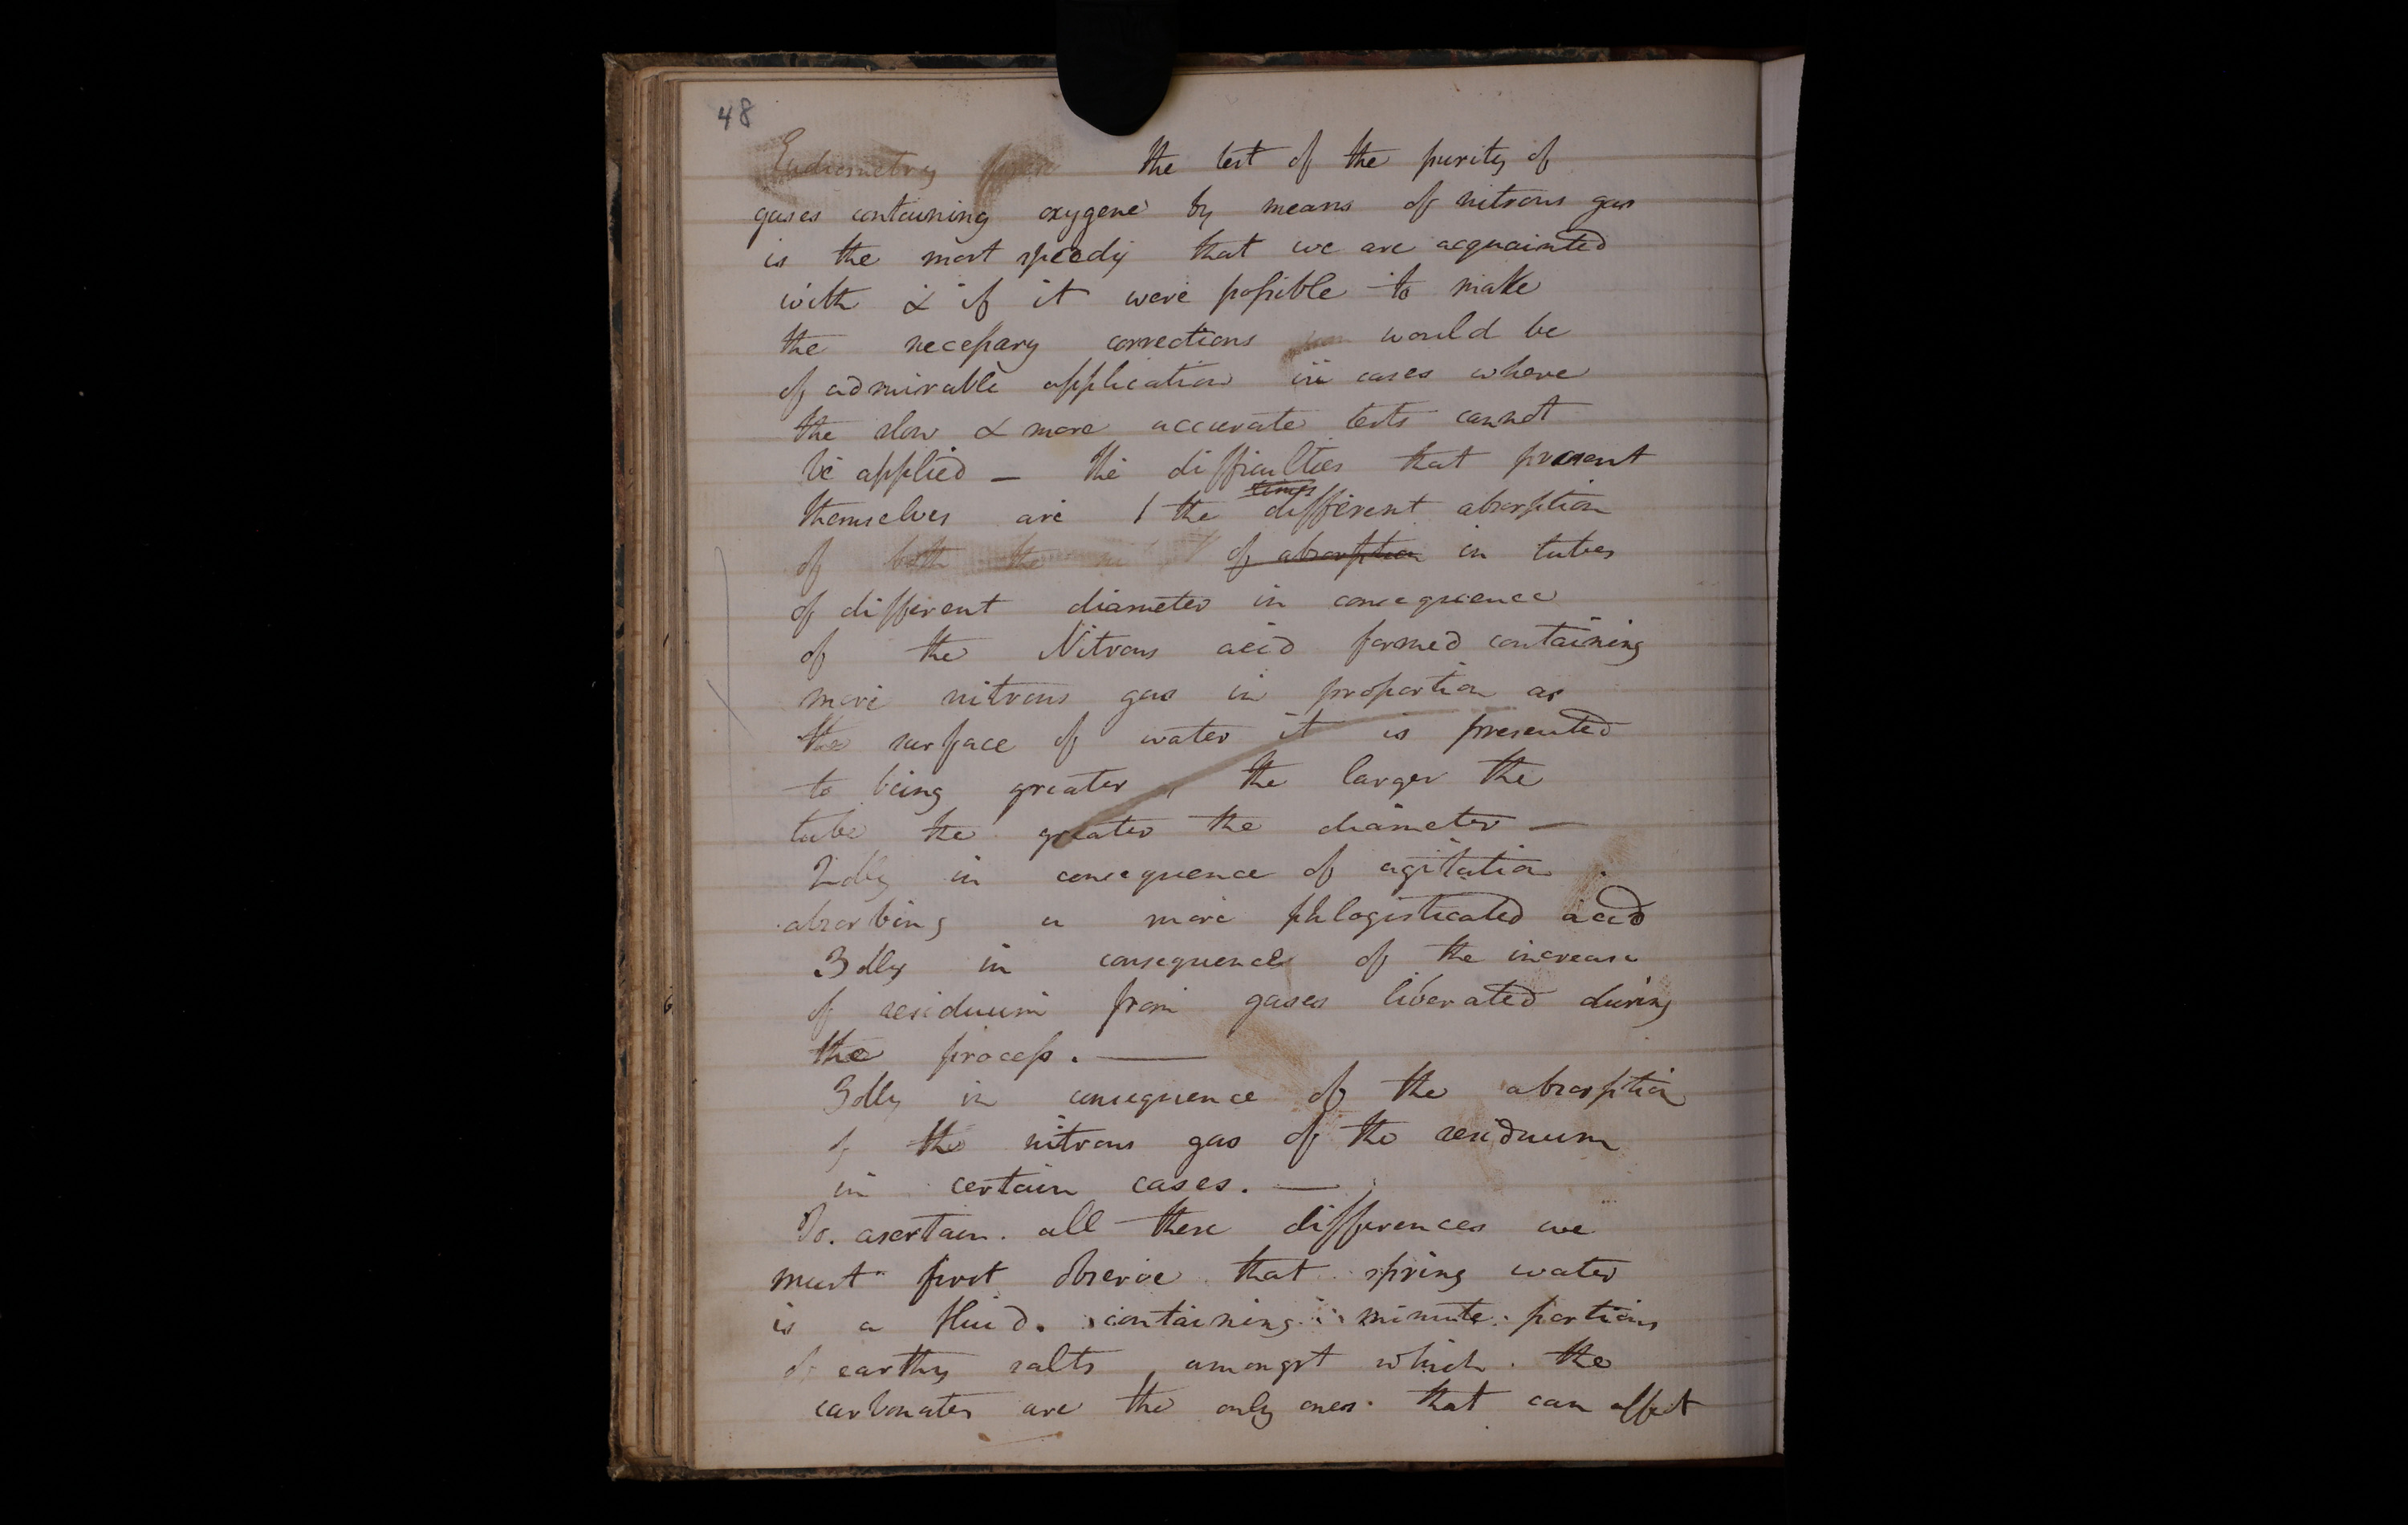 48
Eudiometry the test of the purity of
gases containing oxygene by means of nitrous gas
is the most speedy that we are acquainted
with & if it were possible to make
the necessary corrections would be
of admirable application in cases where
the slow & more accurate tests cannot
be applied — the difficulties that present
times
themselves are 1 the different absorption
of both the of absorption in tubes
of different diameter in consequence
of the Nitrous acid formed containing
more nitrous gas in proportion as
the surface of water it is presented
to being greater, the larger the
tube the greater the diameter —
2dly in consequence of agitation
absorbing a more phlogisticated acid
3dly in consequence of the increase
of residuum from gases liberated during
the process. —
3dly in consequence of the absorption
of the nitrous gas of the residuum
in certain cases. —
To. asertain. all these differences we
must first observe that spring water
is a fluid. containing minute portions
of earthy salts amongst which. the
carbonates are the only ones. that can affect